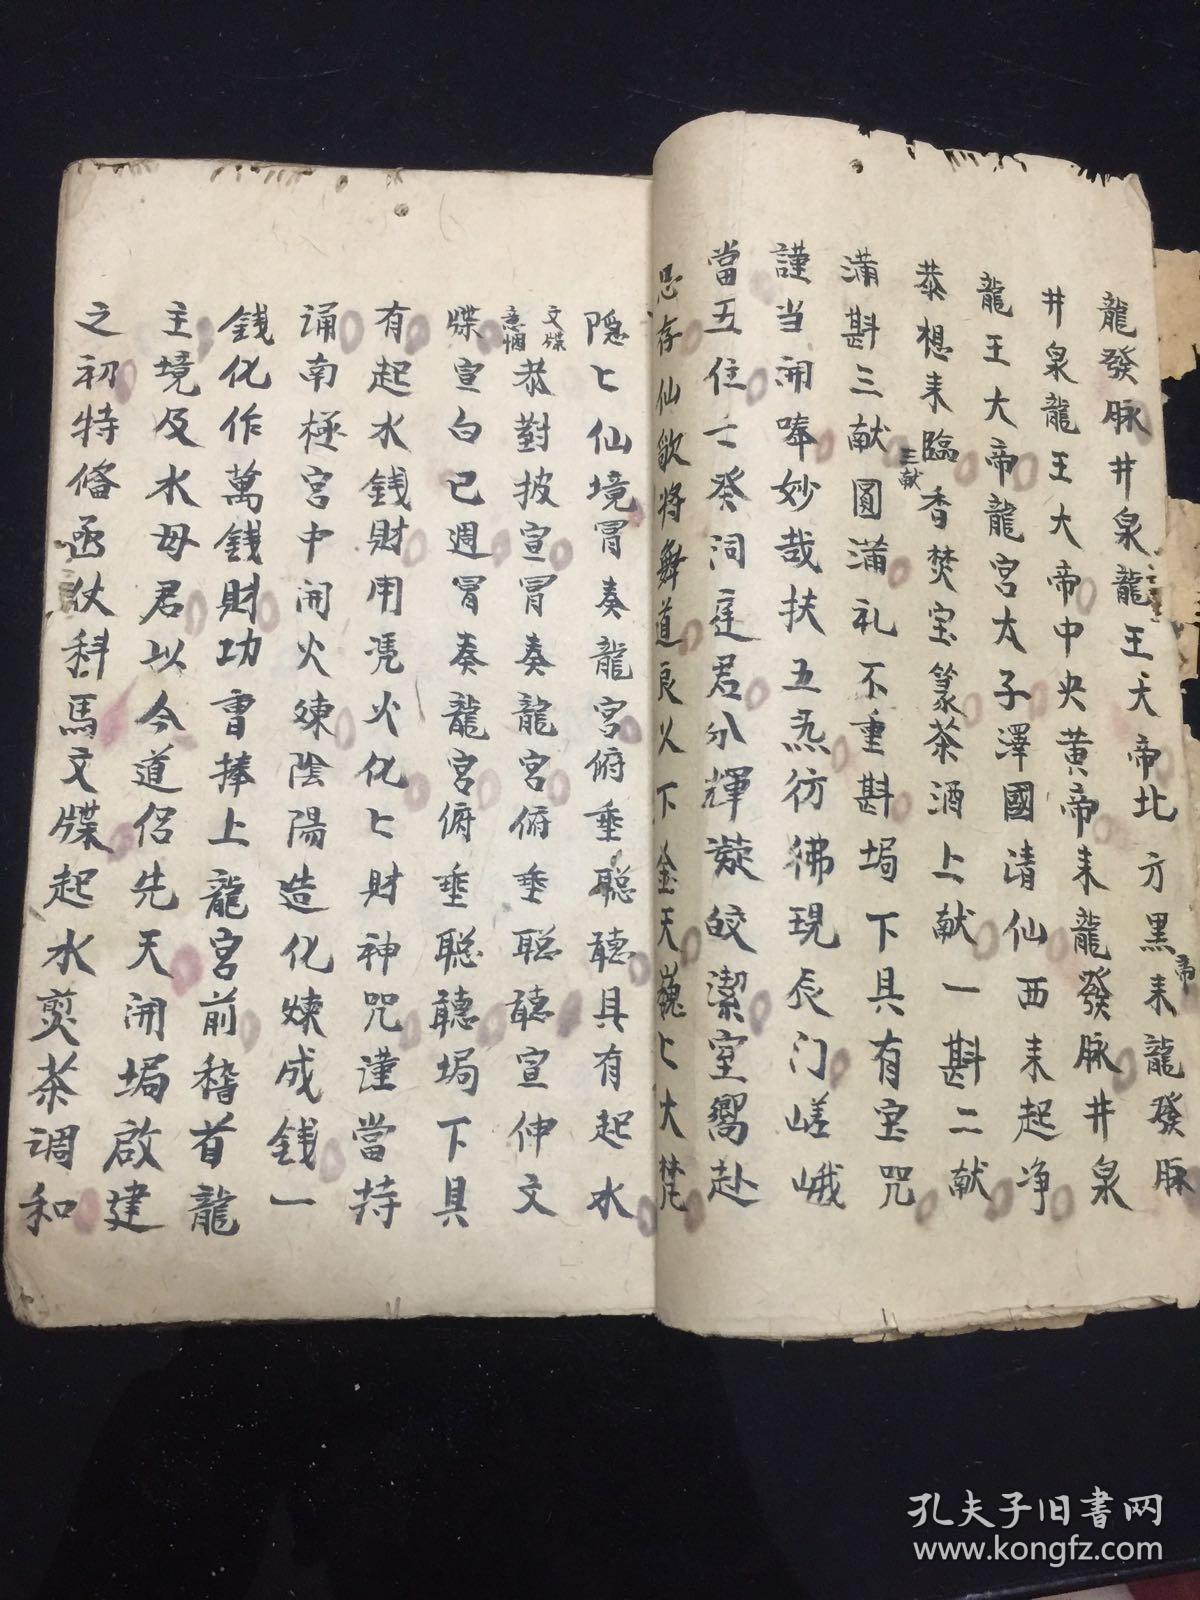 龍發脉井泉龍王大帝北方黑帝來龍發脉
井泉龍王大帝中央黃帝耒龍發脉井泉
龍王大帝龍宮太子澤國請仙西耒起净
恭想耒臨香焚宝篆茶酒上献一斟二献
三献
滿斟三献圓滿礼不重斟塲下具有宝咒
謹当開唪妙哉扶五炁彷彿現辰门嵯峨
當五位壬癸洞庭君分輝凝皎潔室嚮赴
思存仙歆將舞道良以下金天巍匕大梵
隐匕仙境冐奏龍宮俯垂聪聼具有起水
文牒
意悃
恭對披宣冐奏龍宮俯垂聪聼宣伸文
牒宣白已週冐奏龍宮俯垂聪聼塲下具
有起水錢財用凴火化匕財神咒谨當持
诵南極宮中開火煉陰陽造化煉成錢一
錢化作萬錢財功曹捧上龍宮前稽首龍
主境及水母君以今道侣先天開塲啟建
之初特俻函伏科馬文牒起水煎茶调和
孔夫子旧书网
www.kongfz.com